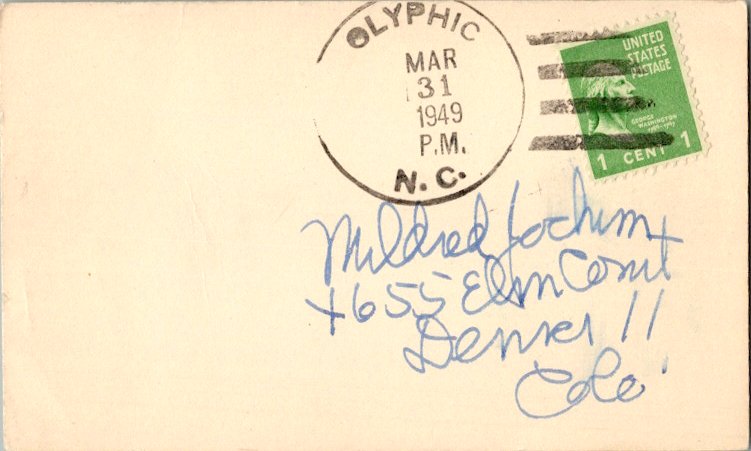 OLYPHIC
MAR
31
1949
P.M.
N.C.
UNITED
STATES
POSTAGE
GEORGE
WASHINGTON
1 CENT 1
Mildred Jochim
4655 Elm Court
Denver 11
Colo